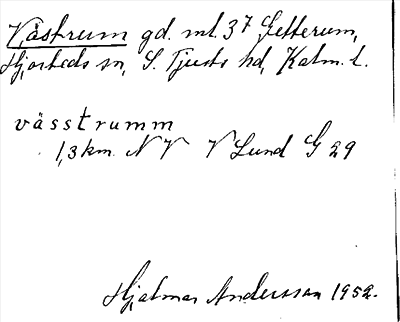 Västrum gd. ml. 37 Getterum,
Hjorteds sn, S. Tjusts hd, Kalm. l.
västrumm
1,3 km. NV V Lund G 29
Hjalmar Andersson 1952.